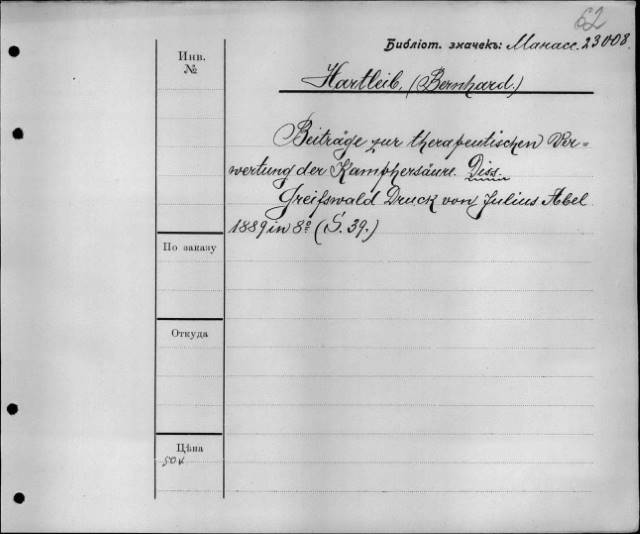 62
Библіот. значекъ: Манасс. 23008.
Инв.
№
Hartleib, (Bernhard.)
Beiträge zur therapeutischen Ver-
wertung der Kamphersäure. Diss.
Greifswald Druck von Julius Abel
1889 in 8° (S. 39.)
По заказу
Откуда
Цѣна
50 к